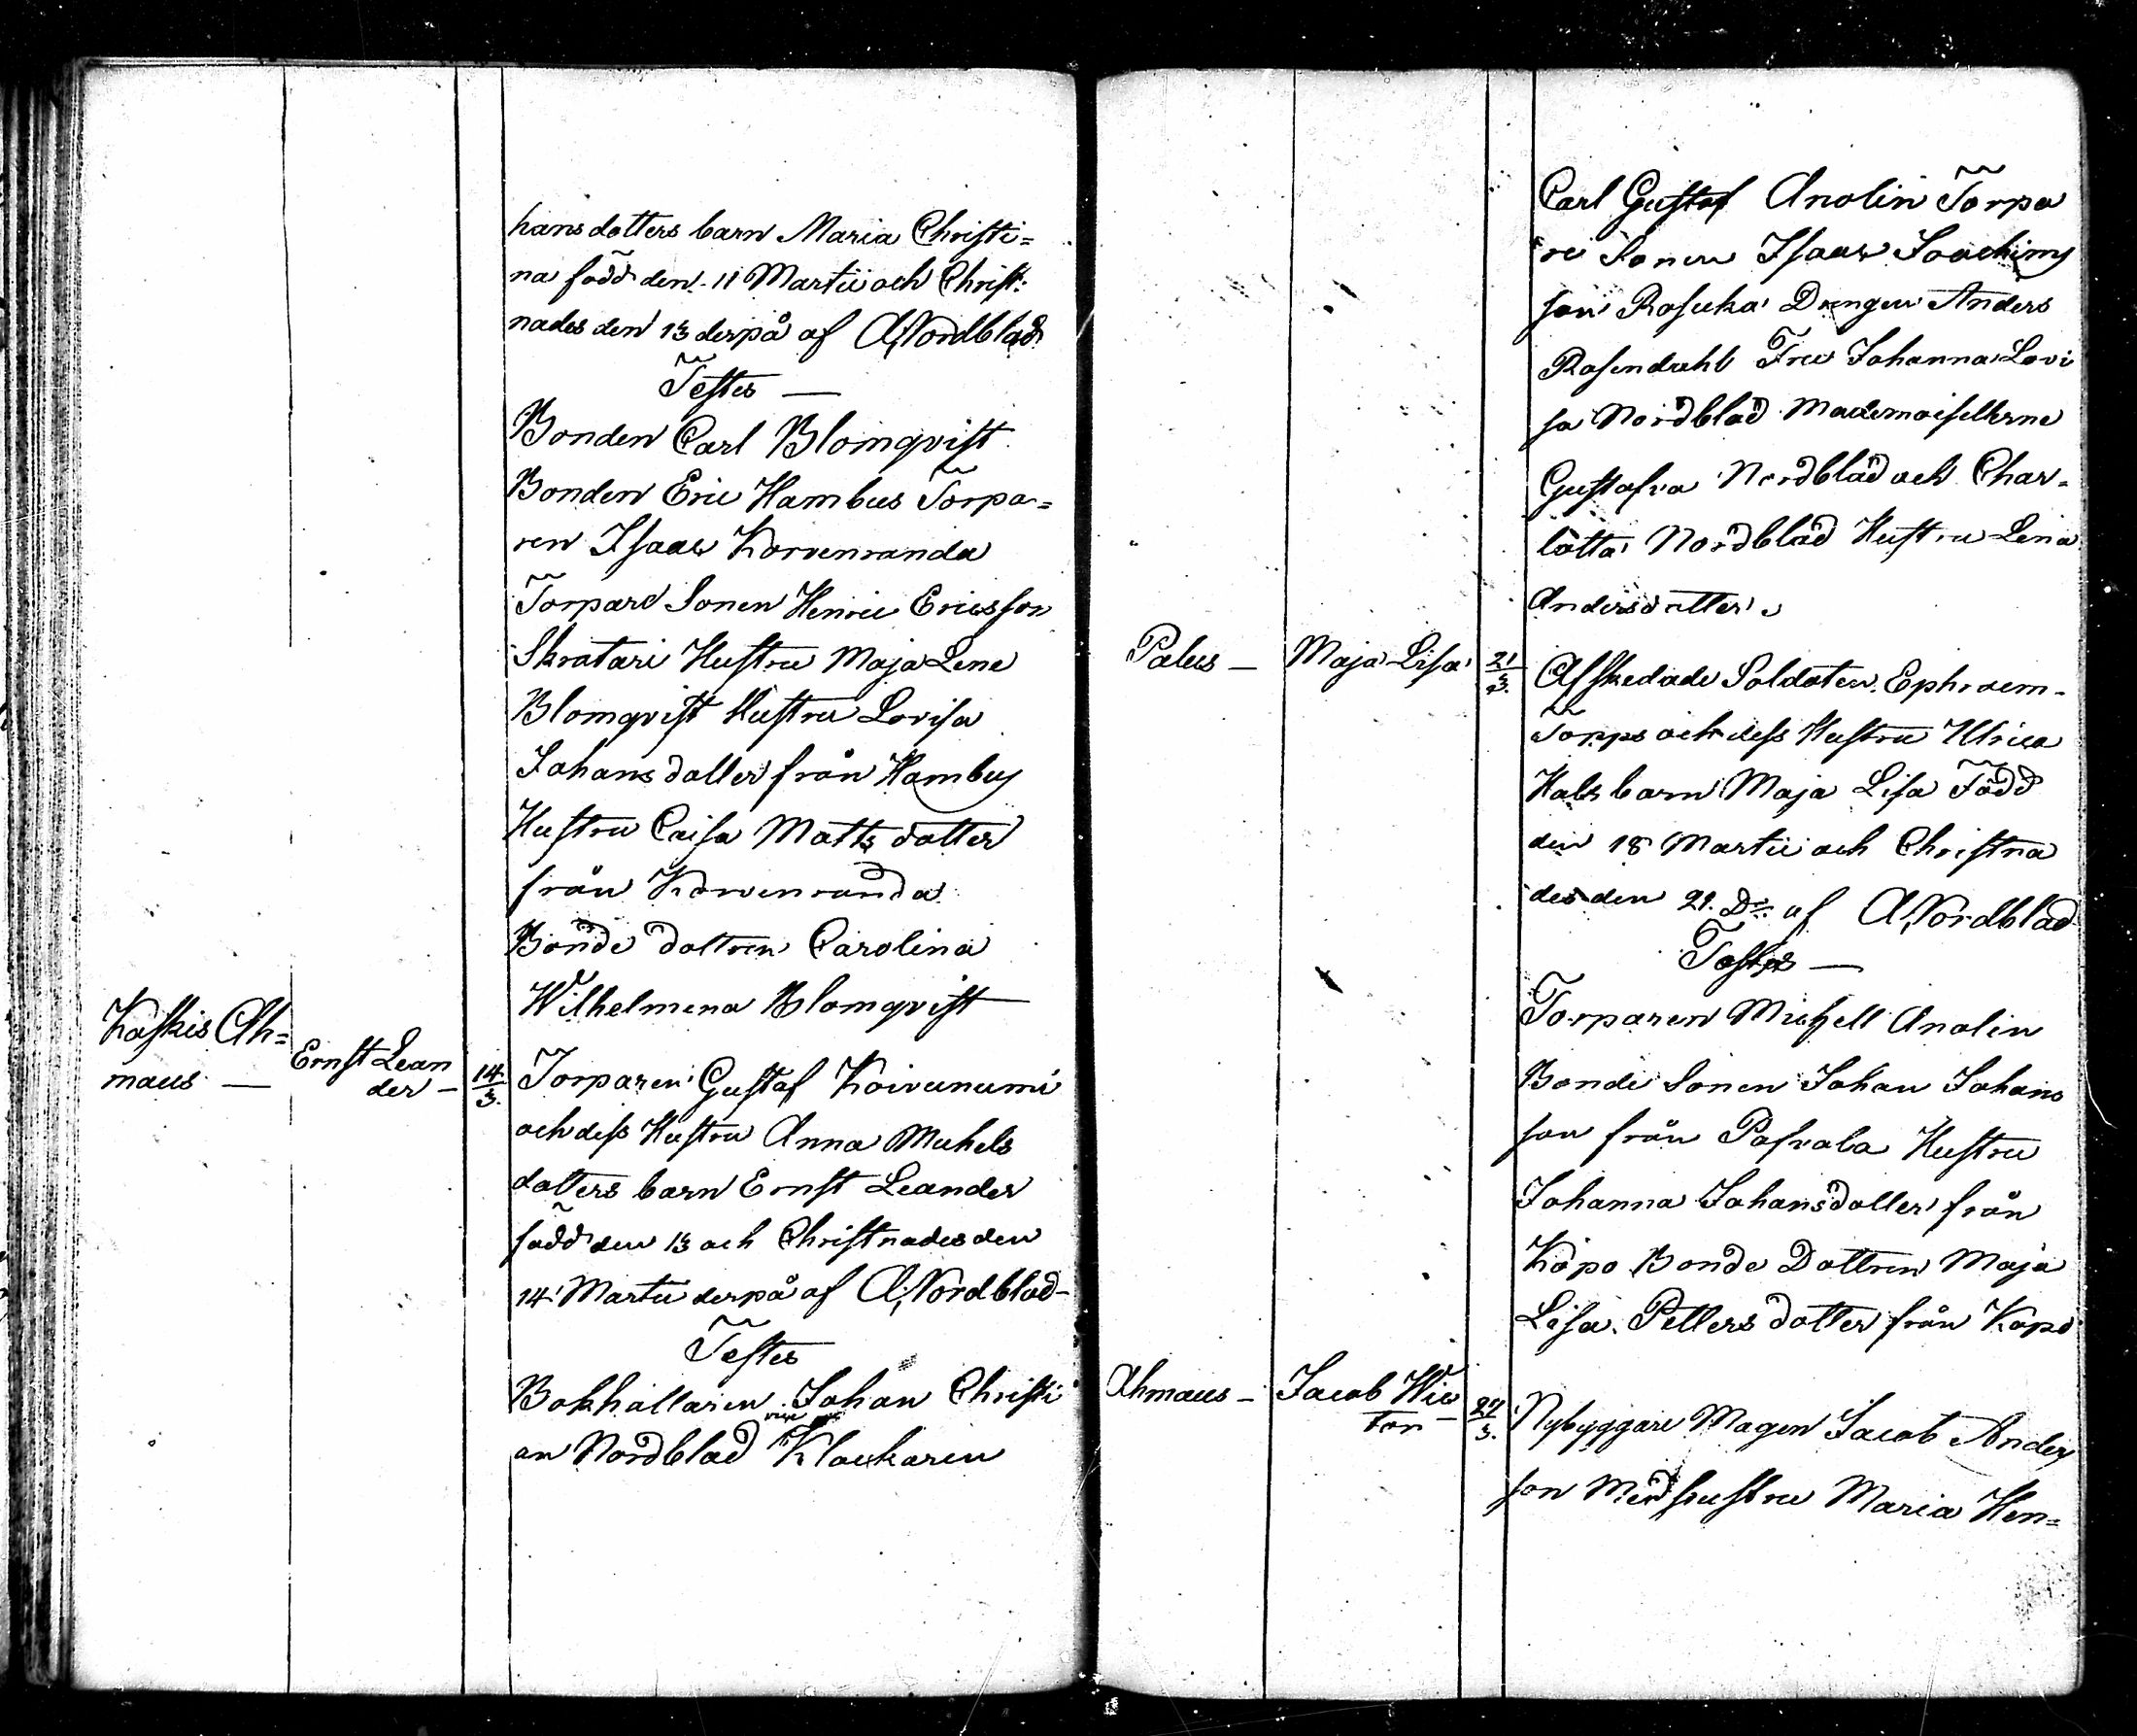 hans dotters barn Maria Christi=
na född den 11 Martii och Christ:
nades den 13 derpå af A, Nordblad
Testes —
Bonden Carl Blomqvist
Bonden Eric Hambus Torpa=
ren Isaac Korvenranda
Torpare Sonen Henric Ericsson
Skratari Hustru Maja Lena
Blomqvist Hustru Lovisa
Johans dotter från Hambus
Hustru Caisa Matts dotter
från Korvenranda
Bonde dottren Carolina
Wilhelmina Blomqvist
Kaskis Ah=
maus —
Ernst Lean
der —
14/3.
Torparen Gustaf Koivuniemi
och dess Hustru Anna Michels
dotters barn Ernst Leander
född den 13 och Christnades den
14 Martii derpå af A, Nordblad
Testes
Bokhållaren Johan Christi
an Nordblad Klockaren
Carl Gustaf Anolin Torpa
re Sonen Isaac Joachims
son Drengen Anders
Rosendahl Fru Johanna Lovi
sa Nordblad Mademoisellerne
Gustafva Nordblad och Char=
lotta Nordblad Hustru Lena
Andersdotter
Palus —
Maja Lisa
21/3.
Afskedade Soldaten Ephraem
Torpp och dess Hustru Ulrica
Hals barn Maja Lisa Född
den 18 Martii och Christna
des den 21. Do af A, Nordblad
Testes —
Torparen Michell Anolin
Bonde Sonen Johan Johans
son från Hustru
Johanna Johansdotter från
Köpo Bonde Dottren Maja
Lisa Petters dotter från Köpo
Ahmaus —
Jacob Wic
tor —
27/3.
Nybyggare Magen Jacob Anders
son Med Hustru Maria Hen=